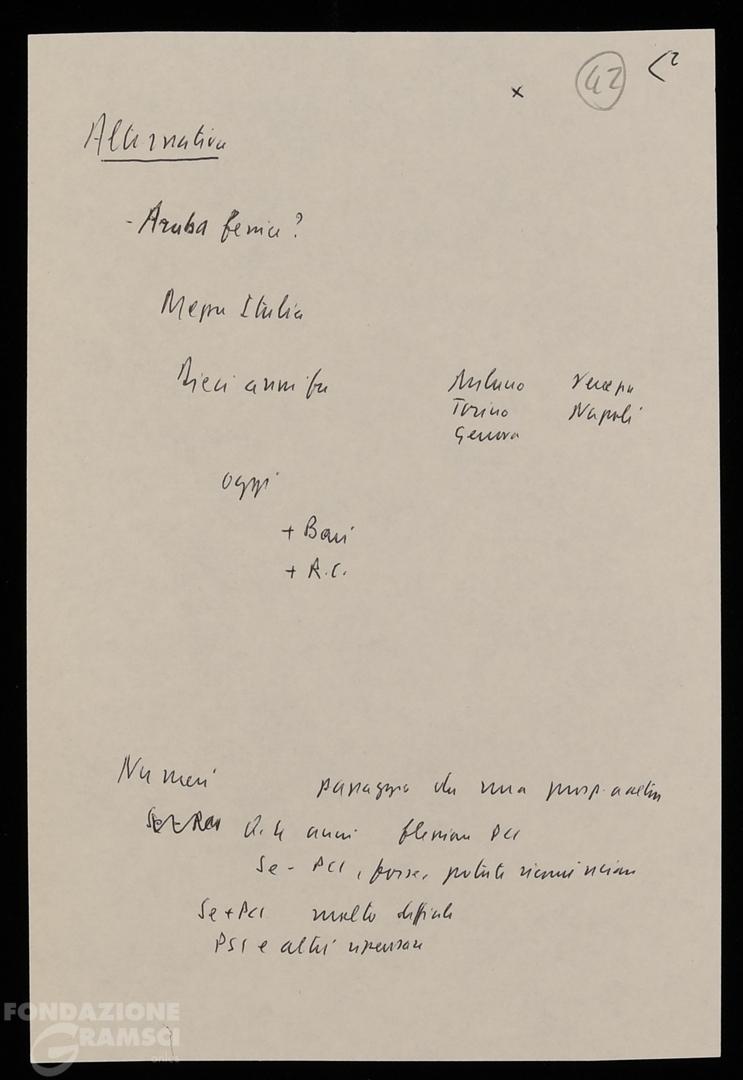 42
x
Alternativa
- Araba fenice?
Mezza Italia
Dieci anni fa
Milano Venezia
Torino Napoli
Genova
oggi
+ Bari
+ R.C.
Numeri passaggio da una prosp. a altra
anni flessione PCI
Se - PCI, forse, potete ricominciare
Se + PCI molto difficile
PSI e altri ripensare
FONDAZIONE
GRAMSCI
onlus